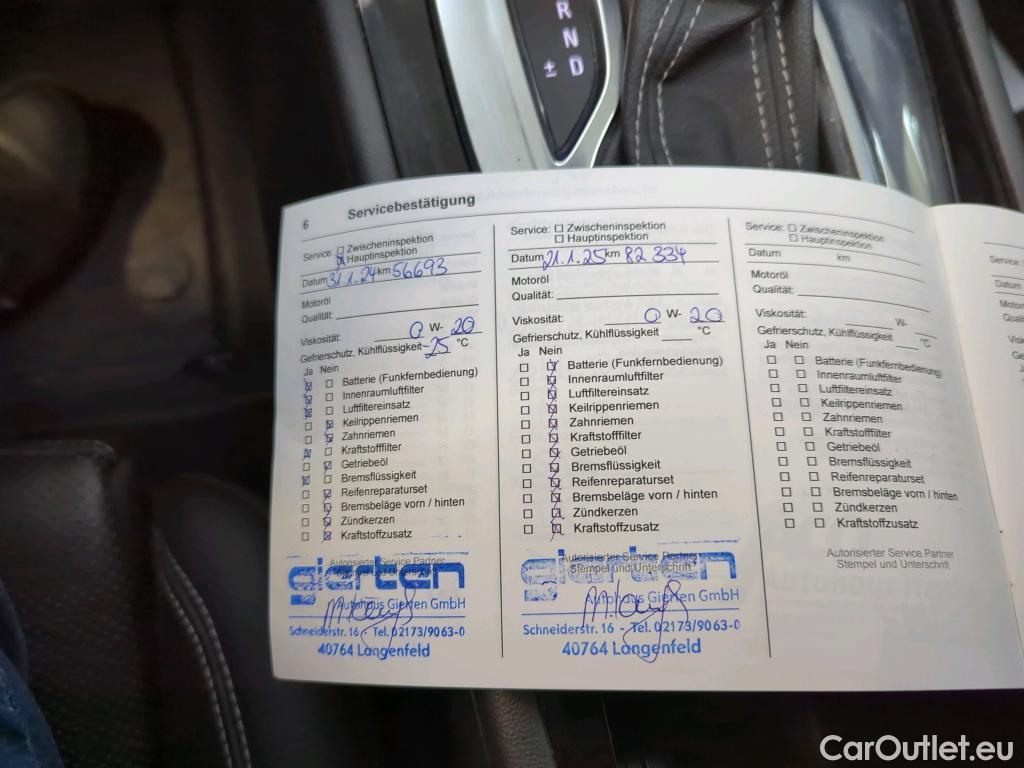 R
N
± D
6 Servicebestätigung
Service: Zwischeninspektion
Hauptinspektion
Datum 31.1.24 km 56693
Motoröl
Qualität:
Viskosität: 0 W- 20
Gefrierschutz, Kühlflüssigkeit -25 °C
Ja Nein
Batterie (Funkfernbedienung)
Innenraumluftfilter
Luftfiltereinsatz
Keilrippenriemen
Zahnriemen
Kraftstofffilter
Getriebeöl
Bremsflüssigkeit
Reifenreparaturset
Bremsbeläge vorn / hinten
Zündkerzen
Kraftstoffzusatz
Autorisierter Service Partner
Stempel und Unterschrift
gierten
Autohaus Gierten GmbH
Schneiderstr. 16 - Tel. 02173/9063-0
40764 Langenfeld
Service: Zwischeninspektion
Hauptinspektion
Datum 21.1.25 km 82 334
Motoröl
Qualität:
Viskosität: 0 W- 20
Gefrierschutz, Kühlflüssigkeit °C
Ja Nein
Batterie (Funkfernbedienung)
Innenraumluftfilter
Luftfiltereinsatz
Keilrippenriemen
Zahnriemen
Kraftstofffilter
Getriebeöl
Bremsflüssigkeit
Reifenreparaturset
Bremsbeläge vorn / hinten
Zündkerzen
Kraftstoffzusatz
Autorisierter Service Partner
Stempel und Unterschrift
gierten
Autohaus Gierten GmbH
Schneiderstr. 16 - Tel. 02173/9063-0
40764 Langenfeld
Service: Zwischeninspektion
Hauptinspektion
Datum km
Motoröl
Qualität:
Viskosität: W-
Gefrierschutz, Kühlflüssigkeit °C
Ja Nein
Batterie (Funkfernbedienung)
Innenraumluftfilter
Luftfiltereinsatz
Keilrippenriemen
Zahnriemen
Kraftstofffilter
Getriebeöl
Bremsflüssigkeit
Reifenreparaturset
Bremsbeläge vorn / hinten
Zündkerzen
Kraftstoffzusatz
Autorisierter Service Partner
Stempel und Unterschrift
Service
Datum
CarOutlet.eu